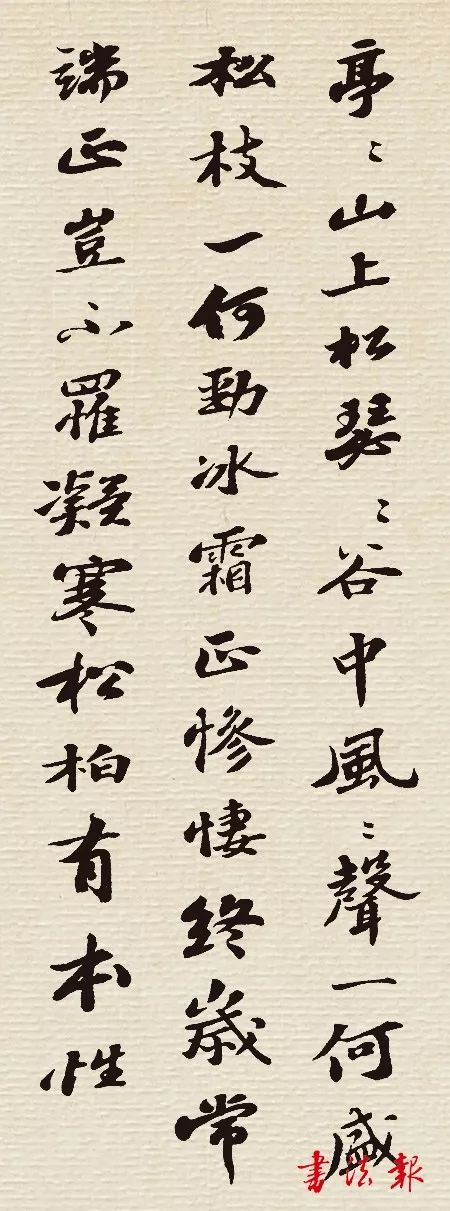 亭〻山上松瑟〻谷中風〻聲一何盛
松枝一何勁冰霜正慘悽終歲常
端正豈不罹凝寒松柏有本性
書法報